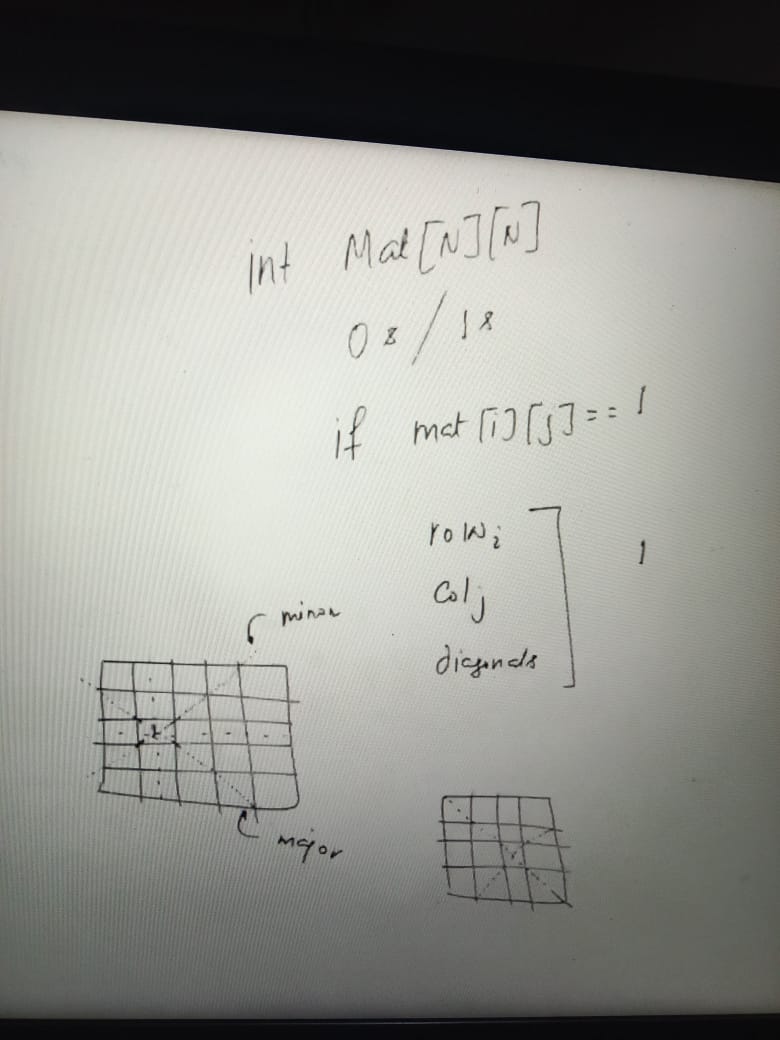 int Mat[N][N]
0s/1s
if mat[i][j]==1
row i
Col j
1
diagonals
minor
major